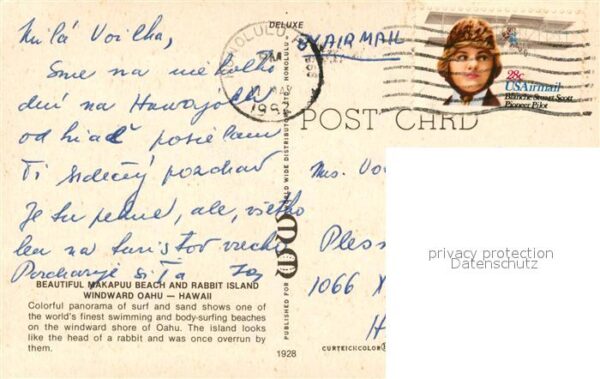 Milá Voilka,
Sme na niekoľko
dní na Hawajoch
odkiaľ posielam
Ti srdečný pozdrav
Je tu pekne, ale, všetko
len na turistov
Pozdravuje
BEAUTIFUL MAKAPUU BEACH AND RABBIT ISLAND
WINDWARD OAHU — HAWAII
Colorful panorama of surf and sand shows one of
the world's finest swimming and body-surfing beaches
on the windward shore of Oahu. The island looks
like the head of a rabbit and was once overrun by
them.
DELUXE
HONOLULU
BY AIRMAIL
28c
USAirmail
Blanche Stuart Scott
Pioneer Pilot
POST CARD
Mrs.
1066
PUBLISHED FOR
WORLD WIDE DISTRIBUTORS, LTD., HONOLULU
1928
CURTEICHCOLOR®
privacy protection
Datenschutz